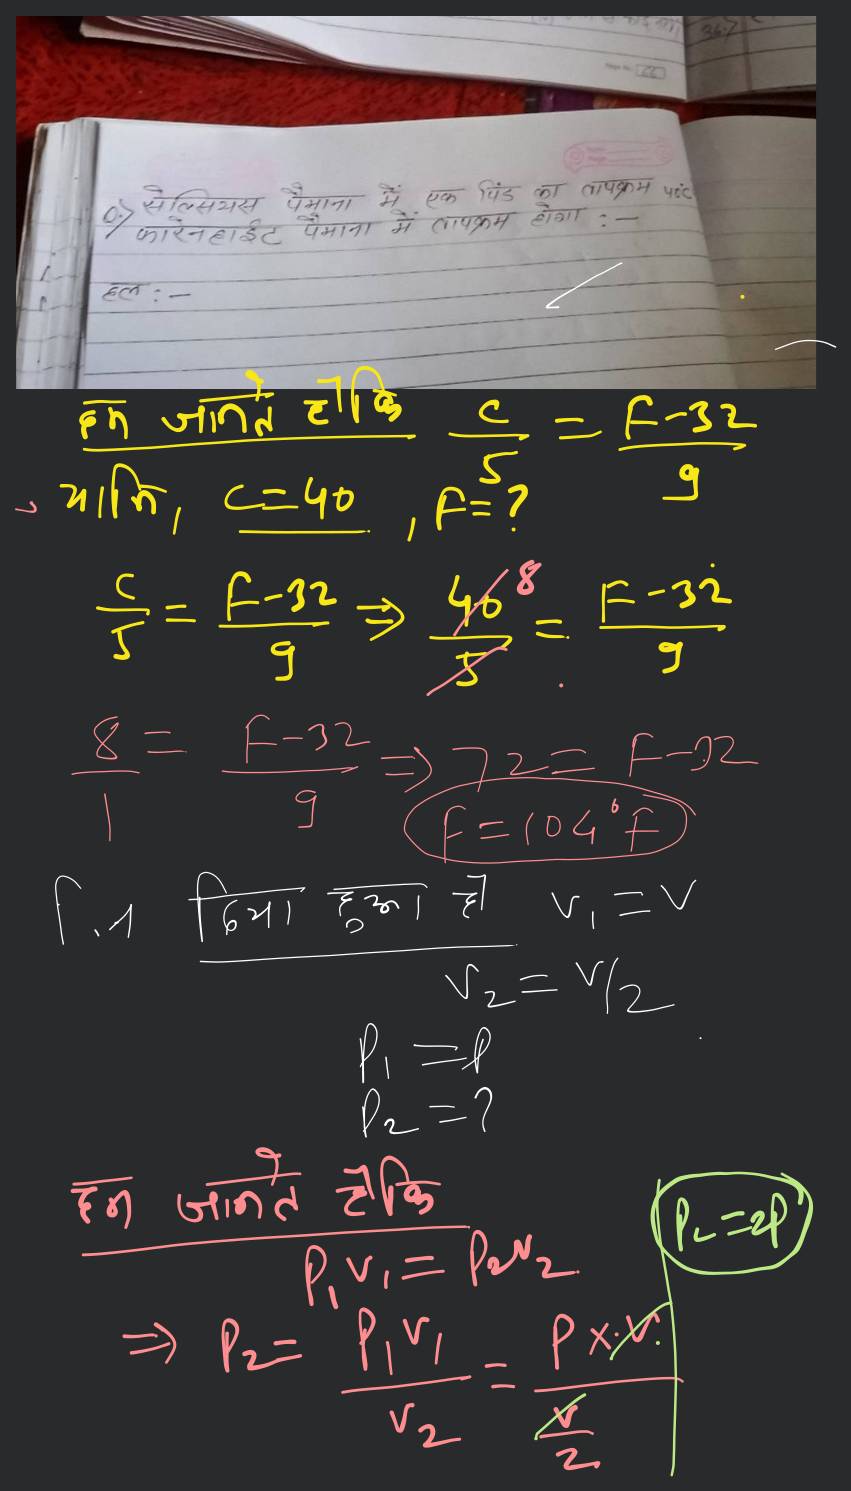 Q.> सेल्सियस पैमाना में एक पिंड का तापक्रम 40°C
फारेनहाईट पैमाना में तापक्रम होगा :-
हल :-
हम जानते हैं कि C/5 = F-32/9
यानि, C=40, F=?
C/5 = F-32/9 ⇒ 40/5 = F-32/9
8
8/1 = F-32/9 ⇒ 72 = F-32
F=104°F
दिया हुआ है V₁=V
V₂=V/2
P₁=P
P₂=?
हम जानते हैं कि
P₁V₁=P₂V₂
⇒ P₂= P₁V₁/V₂ = P×V/V/2
P₂=2P